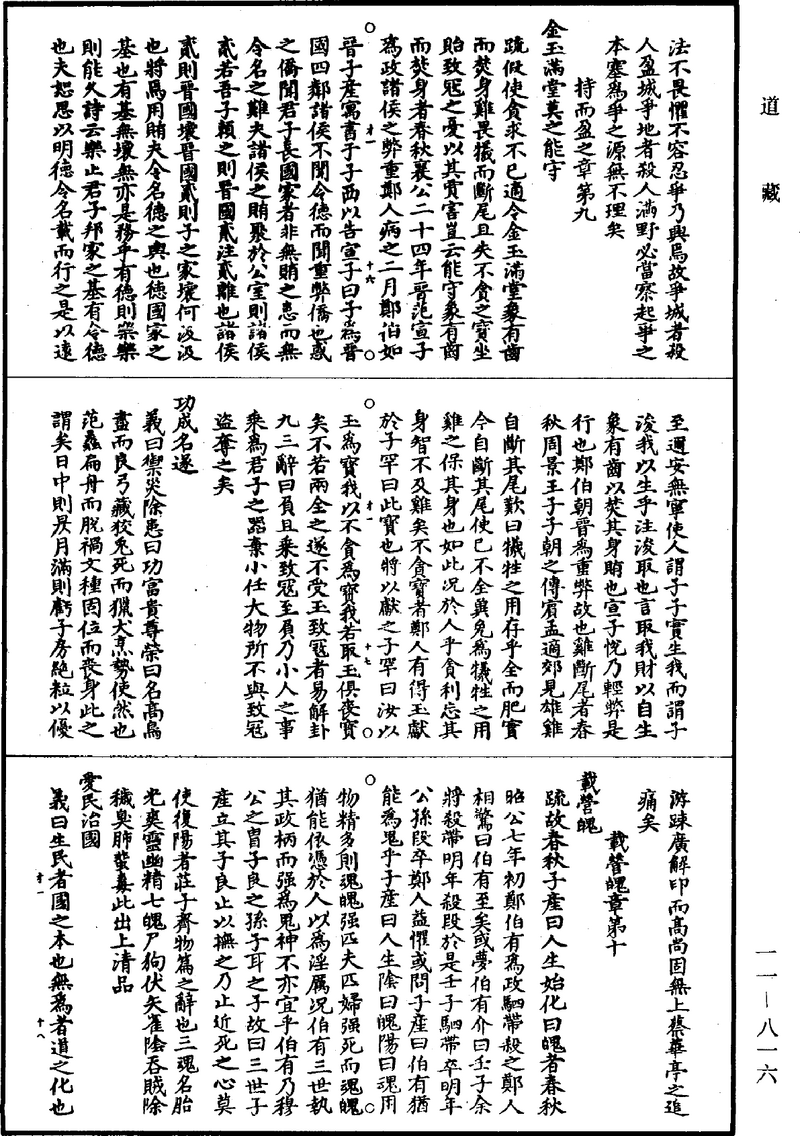 道藏
法不畏懼不容忍爭乃興焉故爭城者殺
人盈城爭地者殺人滿野必當察起爭之
本塞爲爭之源無不理矣
持而盈之章第九
金玉滿堂莫之能守
疏假使貪求不已適令金玉滿堂象有齒
而焚身雞畏犧而斷尾且失不貪之寶坐
貽致寇之憂以其賈害豈云能守象有齒
而焚身者春秋襄公二十四年晉范宣子
爲政諸侯之弊重鄭人病之二月鄭伯如
晉子產寓書于子西以告宣子曰子爲晉
國四鄰諸侯不聞令德而聞重弊僑也惑
之僑聞君子長國家者非無賄之患而無
令名之難夫諸侯之賄聚於公室則諸侯
貳若吾子賴之則晉國貳注貳離也諸侯
貳則晉國壞晉國貳則子之家壞何沒沒
也將焉用賄夫令名德之輿也德國家之
基也有基無壞無亦是務乎有德則樂樂
則能久詩云樂止君子邦家之基有令德
也夫恕思以明德令名載而行之是以遠
至邇安無寧使人謂子子實生我而謂子
浚我以生乎注浚取也言取我財以自生
象有齒以焚其身賄也宣子悅乃輕弊是
行也鄭伯朝晉爲重弊故也雞斷尾者春
秋周景王子子朝之傅賓孟適郊見雄雞
自斷其尾歎曰犧牲之用存乎全而肥實
今自斷其尾使已不全冀免爲犧牲之用
雞之保其身也如此況於人乎貪利忘其
身智不及雞矣不貪寶者鄭人有得玉獻
於子罕曰此寶也將以獻之子罕曰汝以
玉爲寶我以不貪爲寶我若取玉俱喪寶
矣不若兩全之遂不受玉致寇者易解卦
九三辭曰負且乘致寇至負乃小人之事
乘爲君子之器棄小任大物所不與致寇
盜奪之矣
功成名遂
義曰禦災除患曰功富貴尊榮曰名高鳥
盡而良弓藏狡兔死而獵犬烹勢使然也
范蠡扁舟而脫禍文種固位而喪身此之
謂矣日中則昃月滿則虧子房絕粒以優
游踈廣解印而高尚固無上蔡華亭之追
痛矣
載營魄章第十
載營魄
疏故春秋子產曰人生始化曰魄者春秋
昭公七年初鄭伯有爲政駟帶殺之鄭人
相驚曰伯有至矣或夢伯有介曰壬子余
將殺帶明年殺段於是壬子駟帶卒明年
公孫段卒鄭人益懼或問子產曰伯有猶
能爲鬼乎子產曰人生陰曰魄陽曰魂用
物精多則魂魄強匹夫匹婦強死而魂魄
猶能依憑於人以爲淫厲况伯有三世執
其政柄而強爲鬼神不亦宜乎伯有乃穆
公之胄子良之孫子耳之子故曰三世子
產立其子良止以撫之乃止近死之心莫
使復陽者莊子齊物篇之辭也三魂名胎
光爽靈幽精七魄尸狗伏矢雀陰吞賊除
穢臭肺蜚毒此出上清品
愛民治國
義曰生民者國之本也無爲者道之化也
才一 十六
才一 十七
才一 十八
一一—八一六